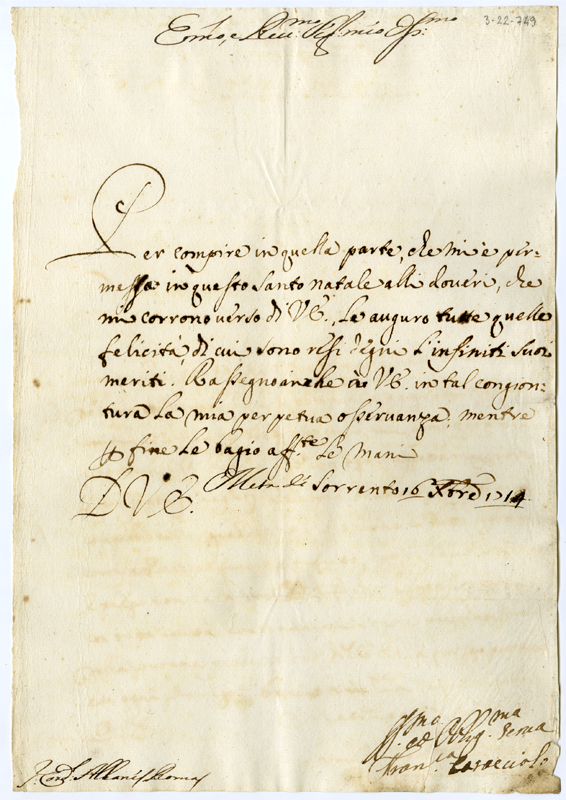 3-22-749
Em̃o, e Reu:mo Sig.r mio Oss:mo
Per compire in quella parte, che mi è per=
messa in questo santo natale alli doueri, che
mi corrono verso di V.E., Le auguro tutte quelle
felicità, di cui sono resi degni l'infiniti suoi
meriti. Rassegno anche a V.E. in tal congion=
tura la mia perpetua osseruanza, mentre
fine le bagio aff.te le mani
D V.E. Meta di Sorrento 16 Xbre 1714
ed Oblig.ma serua
Fran.ca Caracciolo
S. Card. Albani Roma